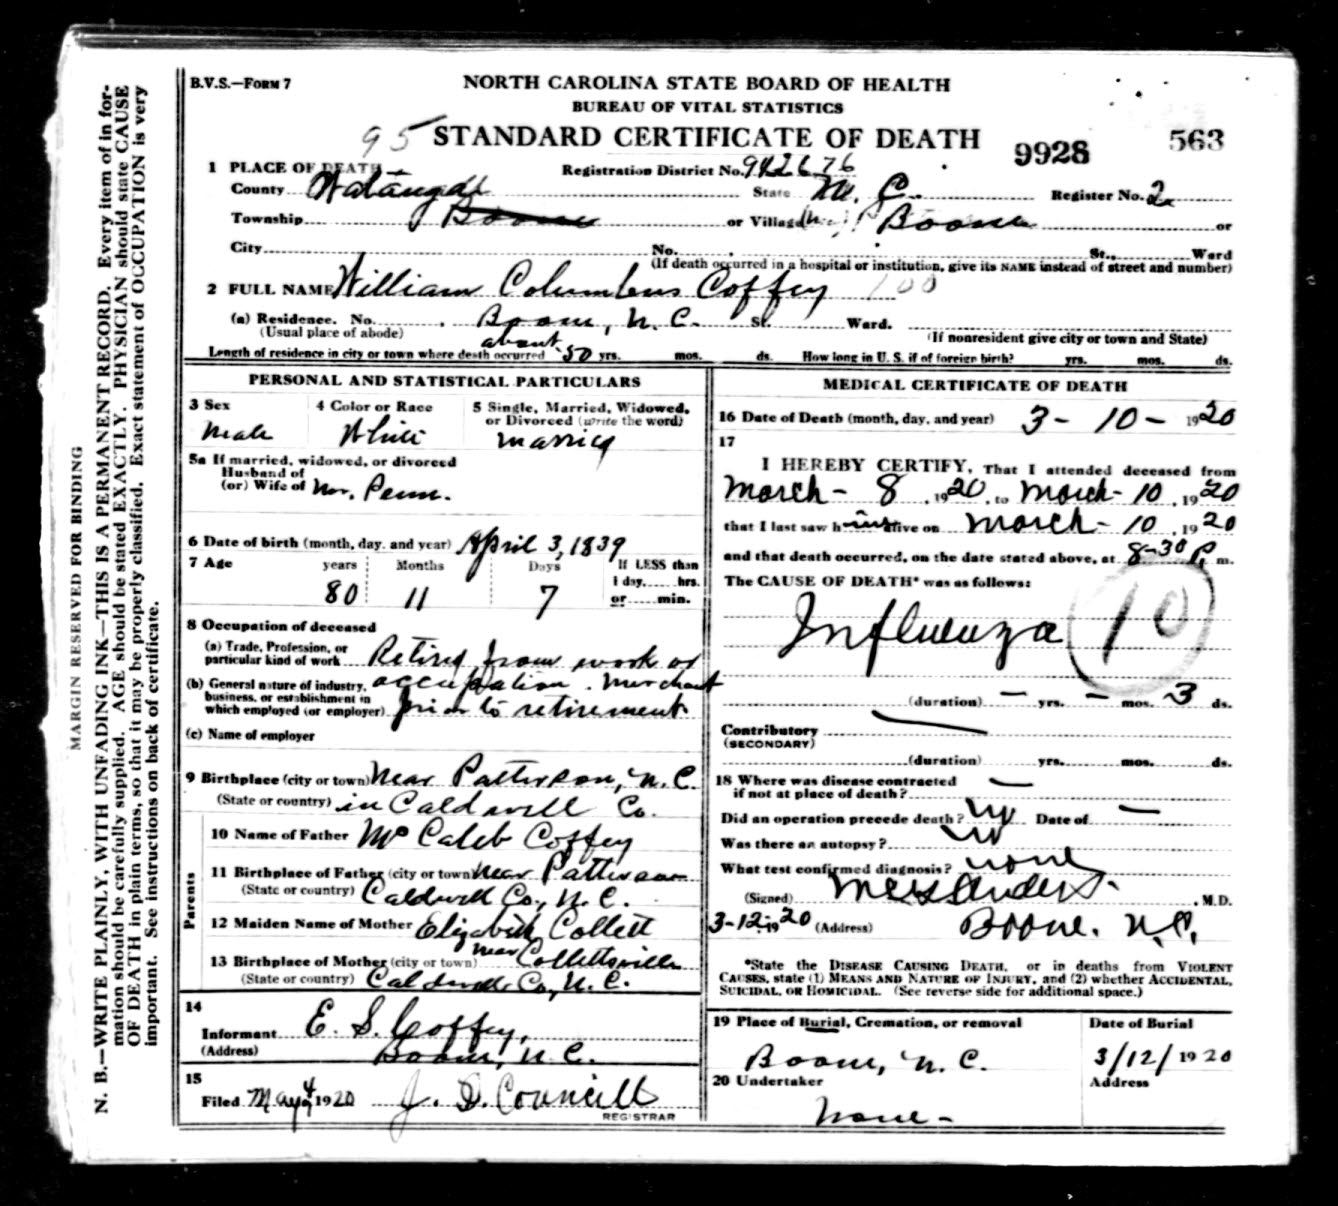 B.V.S.—FORM 7
NORTH CAROLINA STATE BOARD OF HEALTH
BUREAU OF VITAL STATISTICS
95 STANDARD CERTIFICATE OF DEATH 9928 563
1 PLACE OF DEATH Registration District No. 942676
County Watauga State N. C. Register No. 2
Township Boone or Village Boone or
City No. St., Ward
(If death occurred in a hospital or institution, give its NAME instead of street and number)
2 FULL NAME William Columbus Coffey 100
(a) Residence. No. Boone, N. C. St. Ward.
(Usual place of abode) (If nonresident give city or town and State)
about
Length of residence in city or town where death occurred 50 yrs. mos. ds. How long in U. S. if of foreign birth? yrs. mos. ds.
PERSONAL AND STATISTICAL PARTICULARS
3 Sex 4 Color or Race 5 Single, Married, Widowed,
or Divorced (write the word)
Male White Married
5a If married, widowed, or divorced
Husband of
(or) Wife of
6 Date of birth (month, day, and year) April 3, 1839
7 Age years Months Days If LESS than
1 day, hrs.
80 11 7 or min.
8 Occupation of deceased
(a) Trade, Profession, or
particular kind of work Retired from work or
(b) General nature of industry, occupation. Merchant
business, or establishment in
which employed (or employer) prior to retirement
(c) Name of employer
9 Birthplace (city or town) Near Patterson, N. C.
(State or country) in Caldwell Co.
Parents
10 Name of Father Mc Caleb Coffey
11 Birthplace of Father (city or town) Near Patterson
(State or country) Caldwell Co., N. C.
12 Maiden Name of Mother Elizabeth Collett
13 Birthplace of Mother (city or town) near Collettsville
(State or country) Caldwell Co., N. C.
14
Informant E. S. Coffey,
(Address) Boone, N. C.
15
Filed May 4 1920 J. D. Councill
REGISTRAR
MEDICAL CERTIFICATE OF DEATH
16 Date of Death (month, day, and year) 3 - 10 - 1920
17
I HEREBY CERTIFY, That I attended deceased from
March - 8, 1920, to March - 10, 1920
that I last saw him alive on March - 10, 1920
and that death occurred, on the date stated above, at 8-30 P. m.
The CAUSE OF DEATH* was as follows:
Influenza 10
(duration) — yrs. — mos. 3 ds.
Contributory —
(SECONDARY)
(duration) yrs. mos. ds.
18 Where was disease contracted
if not at place of death? —
Did an operation precede death? no Date of —
Was there an autopsy? no
What test confirmed diagnosis? none
(Signed) M.D.
3-12-1920 (Address) Boone, N.C.
*State the DISEASE CAUSING DEATH, or in deaths from VIOLENT
CAUSES, state (1) MEANS AND NATURE OF INJURY, and (2) whether ACCIDENTAL,
SUICIDAL, OR HOMICIDAL. (See reverse side for additional space.)
19 Place of Burial, Cremation, or removal Date of Burial
Boone, N. C. 3/12/1920
20 Undertaker Address
None -
MARGIN RESERVED FOR BINDING
N. B.—WRITE PLAINLY, WITH UNFADING INK—THIS IS A PERMANENT RECORD. Every item of infor-
mation should be carefully supplied. AGE should be stated EXACTLY. PHYSICIAN should state CAUSE
OF DEATH in plain terms, so that it may be properly classified. Exact statement of OCCUPATION is very
important. See instructions on back of certificate.